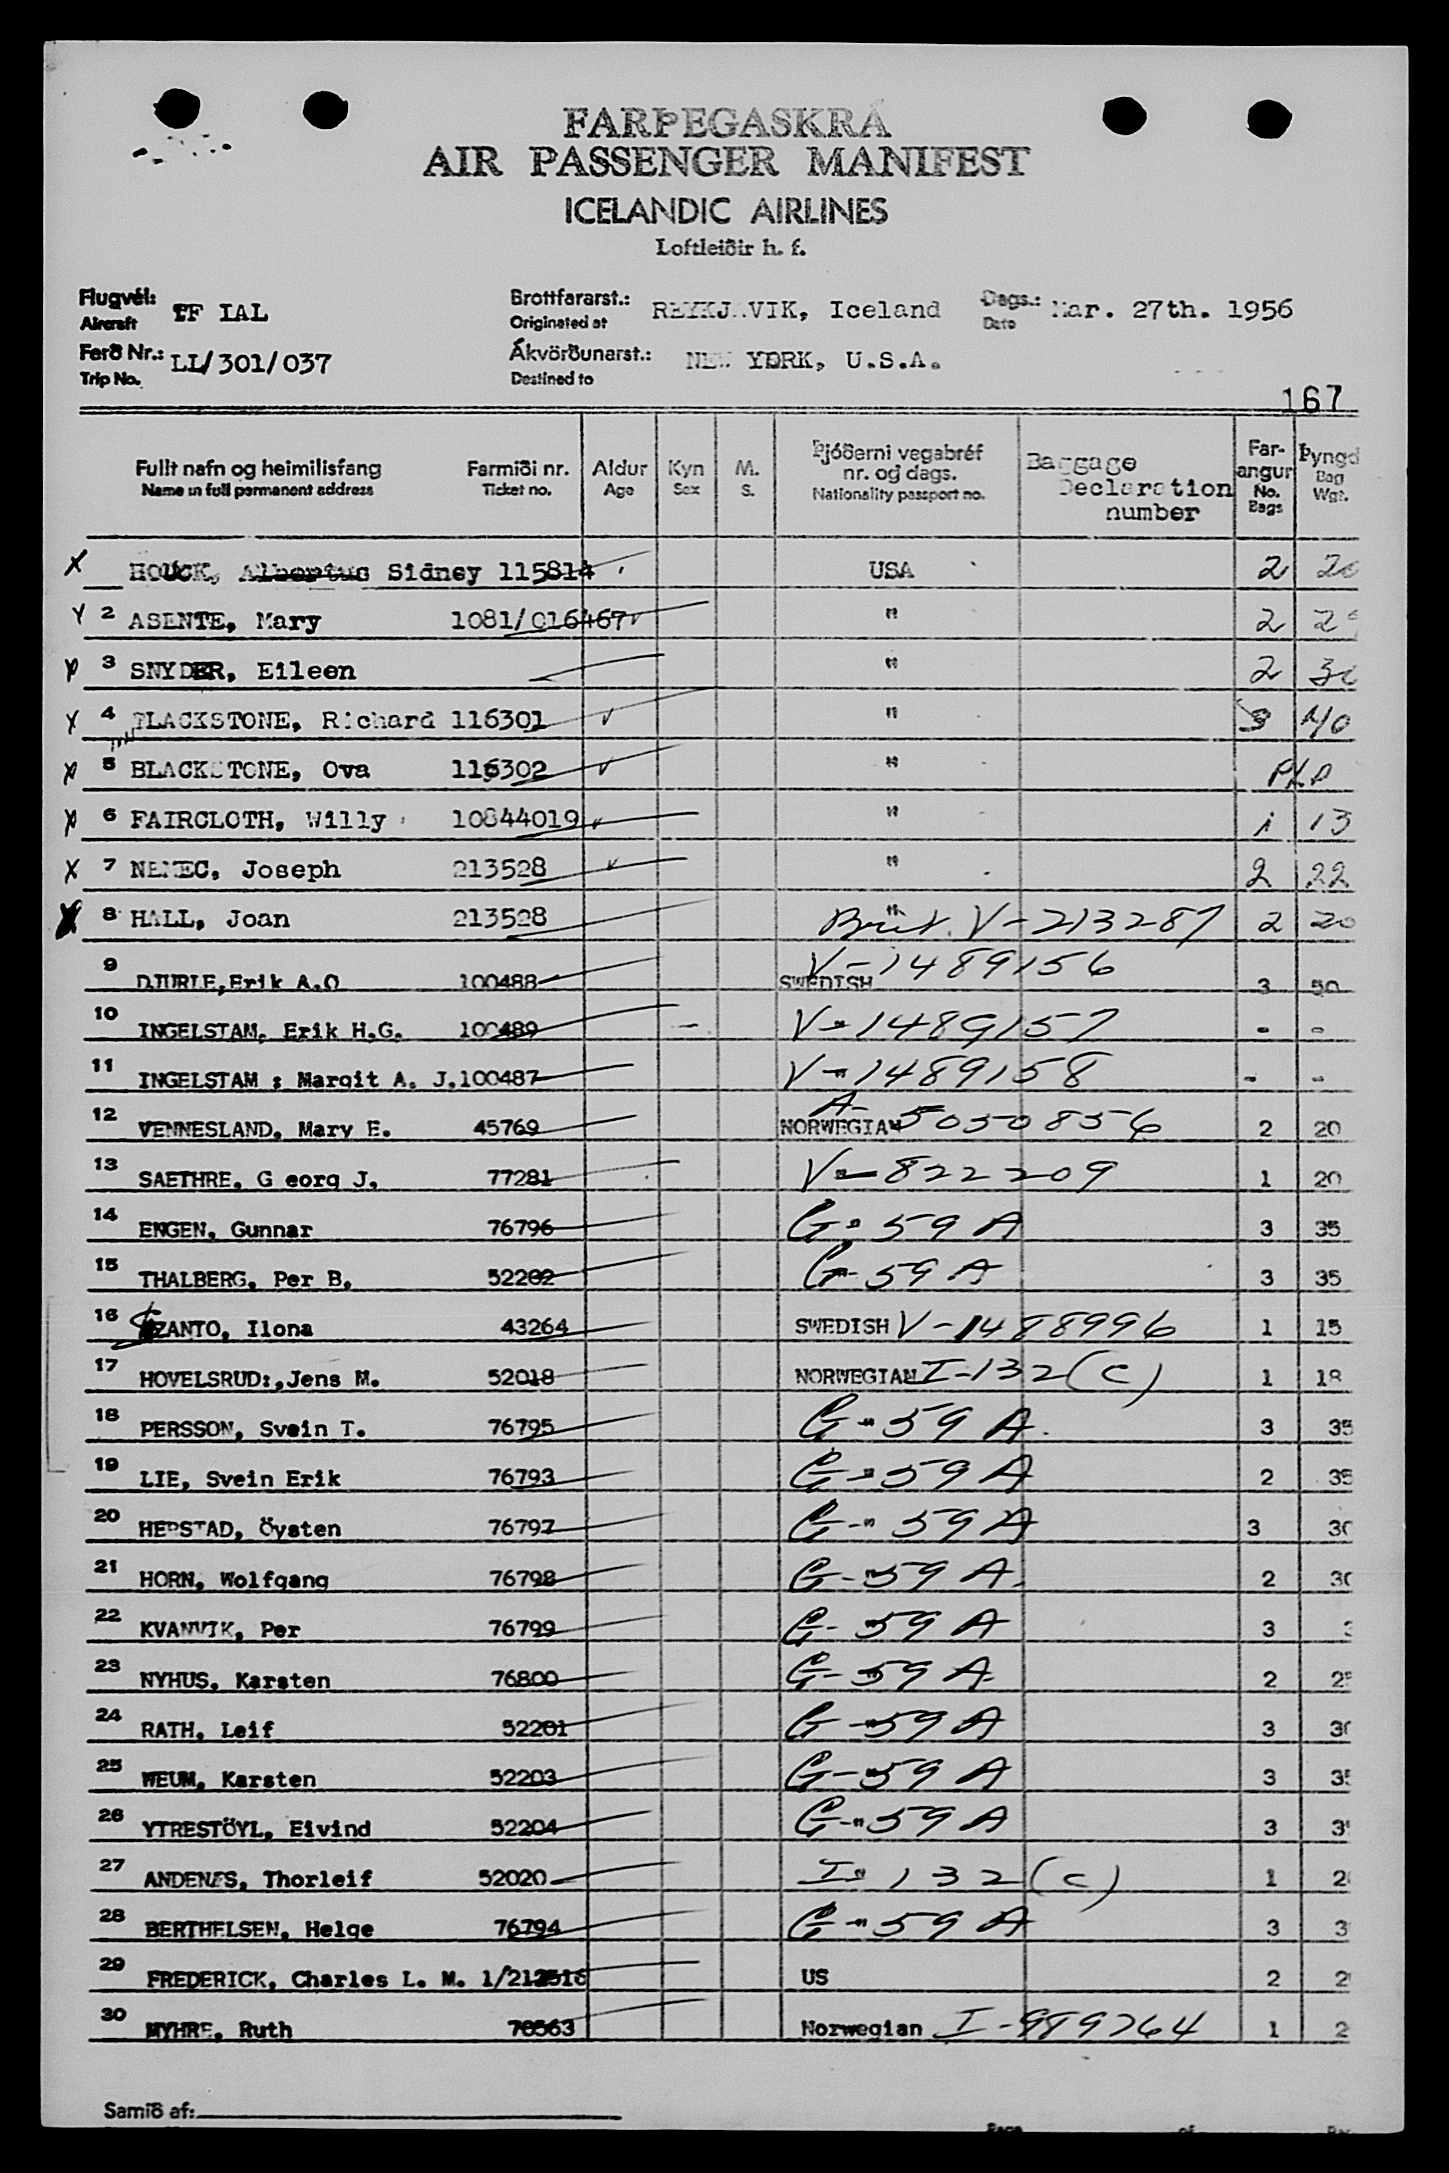 FARÞEGASKRÁ
AIR PASSENGER MANIFEST
ICELANDIC AIRLINES
Loftleiðir h. f.
Flugvél: Aircraft TF IAL Brottfararst.: Originated at REYKJAVIK, Iceland Dags.: Date Mar. 27th. 1956
Ferð Nr.: Trip No. LL/301/037 Ákvörðunarst.: Destined to NEW YORK, U.S.A.
167
Fullt nafn og heimilisfang Farmiði nr. Aldur Kyn M. Þjóðerni vegabréf nr. og dags. Baggage Declaration number Far-angur Þyngd
Name in full permanent address Ticket no. Age Sex S. Nationality passport no. No. Bags Bag Wgt.
X HOUCK, Albertus Sidney 115814 USA 2 20
2 ASENTE, Mary 1081/016467 " 2
X 3 SNYDER, Eileen " 2 30
X 4 BLACKSTONE, Richard 116301 " 3 40
X 5 BLACKSTONE, Ova 116302 "
X 6 FAIRCLOTH, Willy 10844019 " 1 13
X 7 NEMEC, Joseph 213528 " 2 22
X 8 HALL, Joan 213528 " Brit. V-213287 2 20
9 DJURLE, Erik A.O 100488 SWEDISH V-1489156 3 50
10 INGELSTAM, Erik H.G. 100489 V-1489157 - -
11 INGELSTAM ; Margit A. J. 100487 V-1489158 - -
12 VENNESLAND, Mary E. 45769 NORWEGIAN A-5050856 2 20
13 SAETHRE, G eorg J. 77281 V-822209 1 20
14 ENGEN, Gunnar 76796 G-59 A 3 35
15 THALBERG, Per B. 52202 G-59 A 3 35
16 SZANTO, Ilona 43264 SWEDISH V-1488996 1 15
17 HOVELSRUD:,Jens M. 52018 NORWEGIAN I-132(C) 1 18
18 PERSSON, Svein T. 76795 G-59 A. 3 35
19 LIE, Svein Erik 76793 G-59 A 2 35
20 HERSTAD, Öysten 76797 G-59 A 3 30
21 HORN, Wolfgang 76798 G-59 A. 2 30
22 KVANVIK, Per 76799 G-59 A 3
23 NYHUS, Karsten 76800 G-59 A 2 25
24 RATH, Leif 52201 G-59 A 3 30
25 WEUM, Karsten 52203 G-59 A 3 35
26 YTRESTÖYL, Eivind 52204 G-59 A 3
27 ANDENÆS, Thorleif 52020 I-132(C) 1
28 BERTHELSEN, Helge 76794 G-59 A 3
29 FREDERICK, Charles L. M. US 2
30 MYHRE, Ruth 70563 Norwegian I-989764 1
Samið af:
Page of